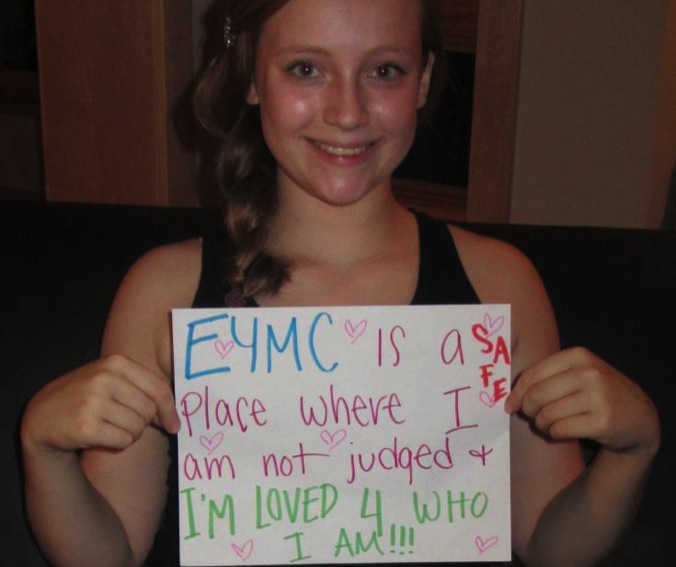 EYMC IS a SAFE
Place where I
am not judged &
I'M LOVED 4 WHO
I AM!!!